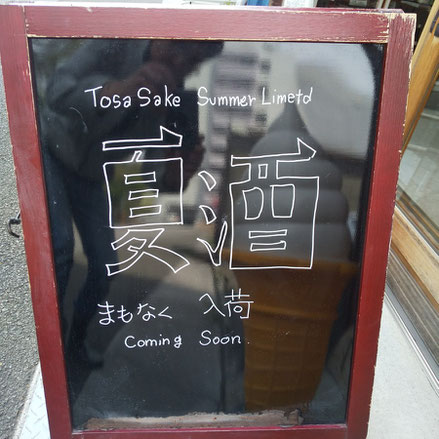 Tosa Sake Summer Limetd
夏酒
まもなく 入荷
Coming Soon.